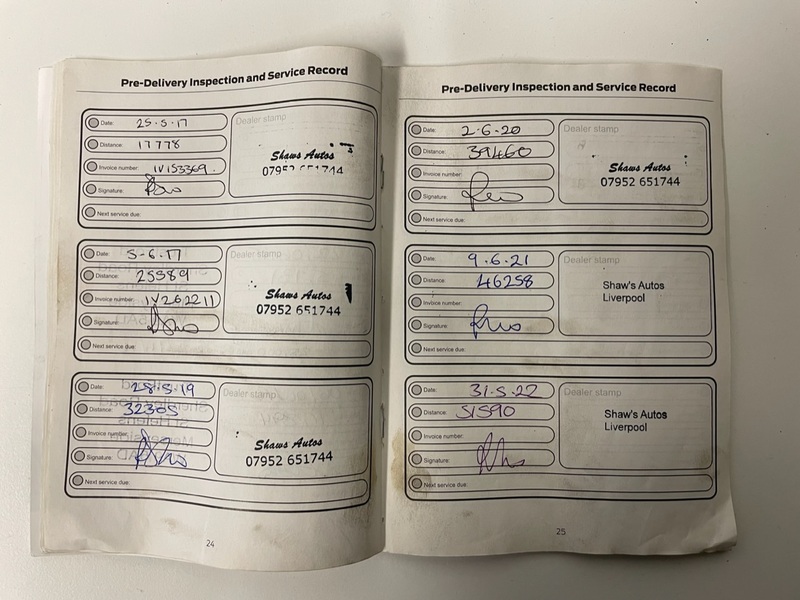 Pre-Delivery Inspection and Service Record
Date: 25.5.17
Distance: 17778
Invoice number: IV153369.
Signature:
Next service due:
Dealer stamp
Shaws Autos
Date: 5-6.17
Distance: 25589
Invoice number: IV262211
Signature:
Next service due:
Dealer stamp
Shaws Autos
07952 651744
Date: 28.5.19
Distance: 32305
Invoice number:
Signature:
Next service due:
Dealer stamp
Shaws Autos
07952 651744
24
Pre-Delivery Inspection and Service Record
Date: 2.6.20
Distance: 39460
Invoice number:
Signature:
Next service due:
Dealer stamp
Shaws Autos
07952 651744
Date: 9.6.21
Distance: 46258
Invoice number:
Signature:
Next service due:
Dealer stamp
Shaw's Autos
Liverpool
Date: 31.5.22
Distance: 51590
Invoice number:
Signature:
Next service due:
Dealer stamp
Shaw's Autos
Liverpool
25